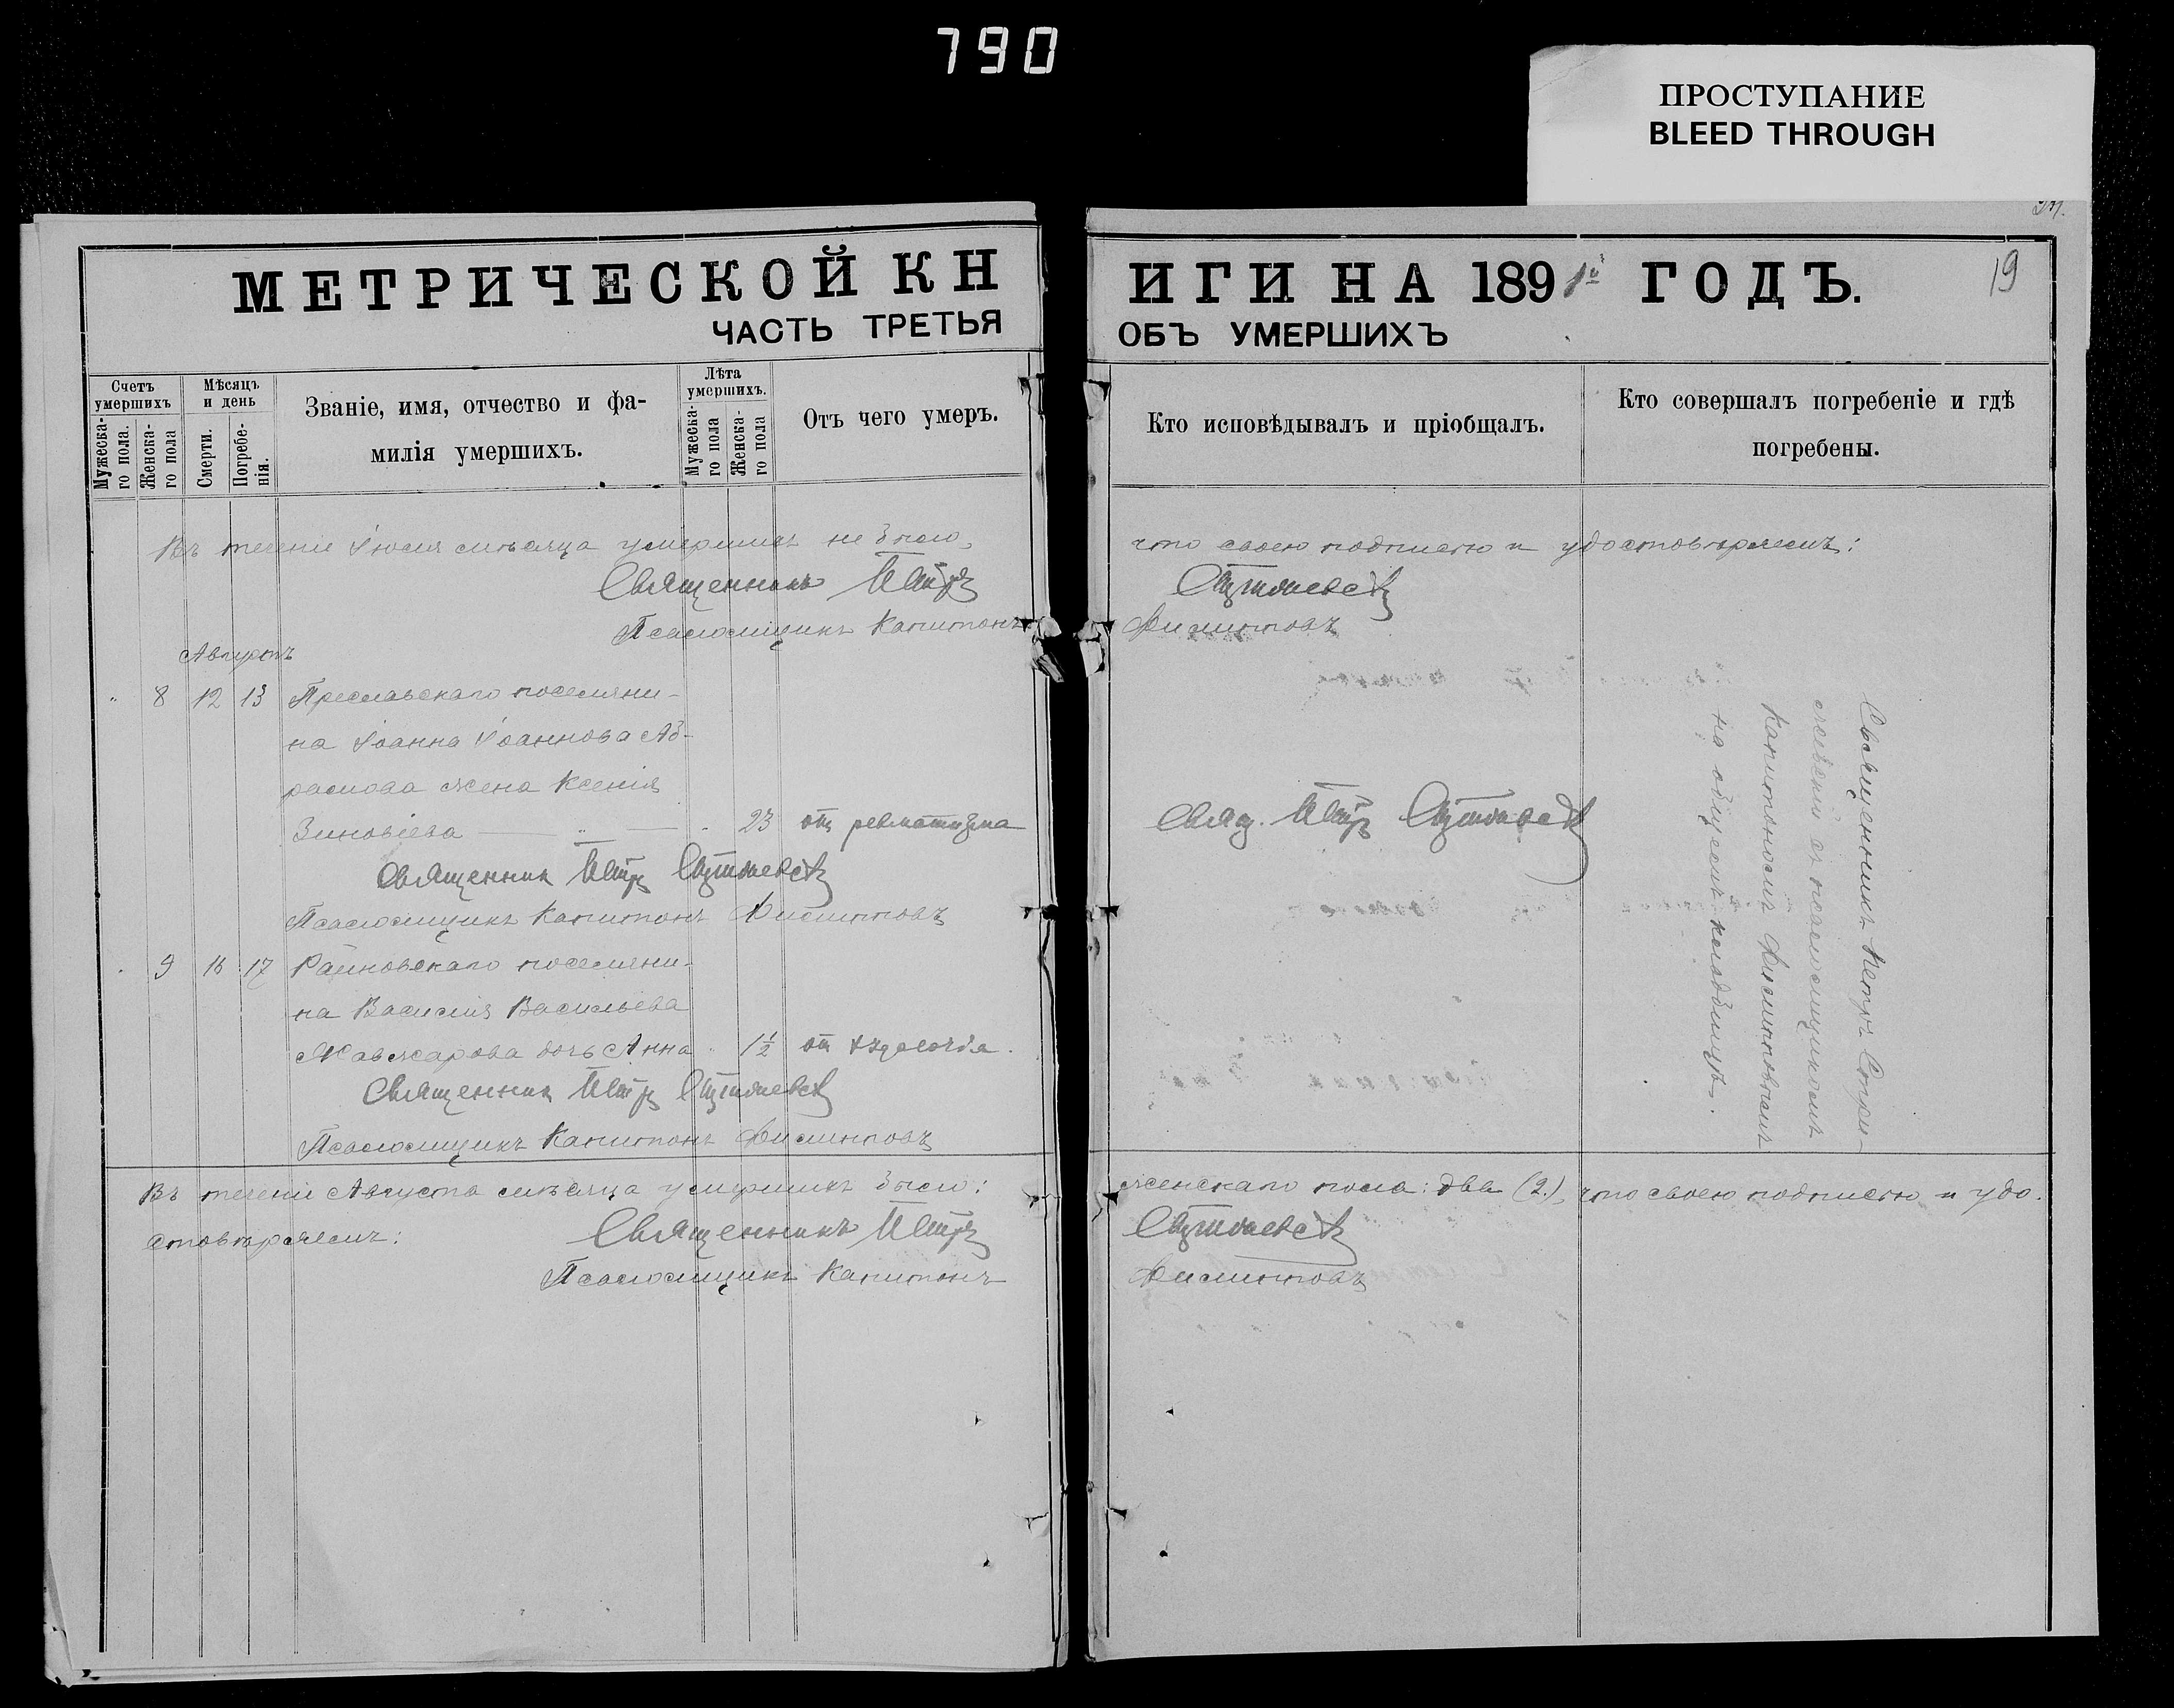 790
ПРОСТУПАНИЕ
BLEED THROUGH
МЕТРИЧЕСКОЙ КНИГИ НА 1891й ГОДЪ.
19
ЧАСТЬ ТРЕТЬЯ ОБЪ УМЕРШИХЪ
Счетъ умершихъ
Мужеска-го пола.
Женска-го пола
Мѣсяцъ и день
Смерти.
Погребе-нія.
Званіе, имя, отчество и фа-
милія умершихъ.
Лѣта умершихъ.
Мужеска-го пола
Женска-го пола
Отъ чего умеръ.
Кто исповѣдывалъ и пріобщалъ.
Кто совершалъ погребеніе и гдѣ
погребены.
Въ теченіе Іюля мѣсяца умершихъ не было, что своею подписью и удостовѣряемъ:
Священникъ Петръ
Псаломщикъ Капитонъ Филипповъ
Августъ
" 8 12 13 Преславскаго поселяни-
на Іоанна Іоаннова Аб-
рамова жена Ксенія
Зиновіева 23 отъ ревматизма Свящ. Петръ
Священник Петръ
Псаломщикъ Капитонъ Филипповъ
9 16 17 Райновскаго поселяни-
на Василія Васильева
Мавжарова дочь Анна 1½ от
Священник Петръ
Псаломщикъ Капитонъ Филипповъ
Священникъ Петръ
съ псаломщикомъ
Капитономъ Филипповымъ
на общемъ кладбищѣ.
Въ теченіи Августа мѣсяца умершихъ было: женскаго пола: два (2), что своею подписью и удо-
стовѣряемъ: Священникъ Петръ
Псаломщикъ Капитонъ Филипповъ